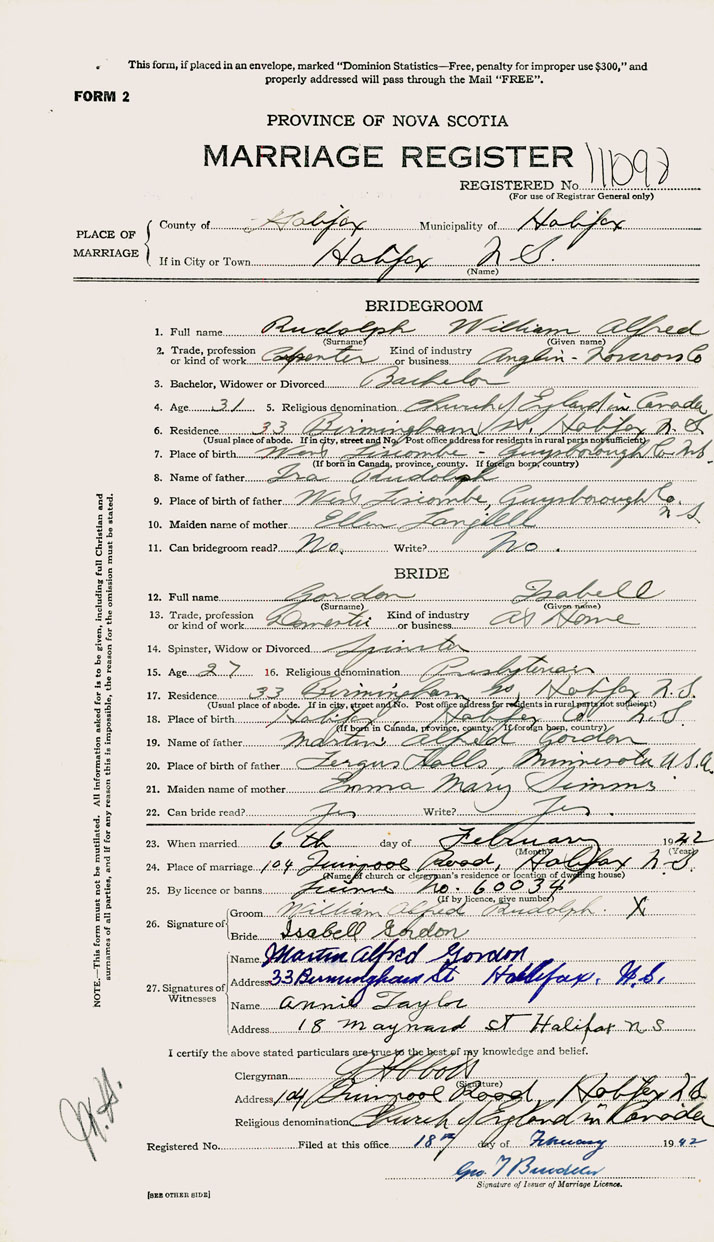 This form, if placed in an envelope, marked "Dominion Statistics—Free, penalty for improper use $300," and
properly addressed will pass through the Mail "FREE".
FORM 2
PROVINCE OF NOVA SCOTIA
MARRIAGE REGISTER
REGISTERED No.
(For use of Registrar General only)
PLACE OF MARRIAGE
County of Halifax Municipality of Halifax
If in City or Town Halifax N.S.
(Name)
BRIDEGROOM
1. Full name Rudolph William Alfred
(Surname) (Given name)
2. Trade, profession or kind of work Carpenter Kind of industry or business Anglin-Norcross Co
3. Bachelor, Widower or Divorced Bachelor
4. Age 31 5. Religious denomination Church of England in Canada
6. Residence 33 Birmingham St, Halifax N.S
(Usual place of abode. If in city, street and No. Post office address for residents in rural parts not sufficient)
7. Place of birth West Liscombe - Guysborough Co. N.S.
(If born in Canada, province, county. If foreign born, country)
8. Name of father Ira Rudolph
9. Place of birth of father West Liscombe, Guysborough Co. N.S
10. Maiden name of mother Ellen Langille
11. Can bridegroom read? No. Write? No.
BRIDE
12. Full name Gordon Isabell
(Surname) (Given name)
13. Trade, profession or kind of work Domestic Kind of industry or business At Home
14. Spinster, Widow or Divorced Spinster
15. Age 27 16. Religious denomination Presbyterian
17. Residence 33 Birmingham St, Halifax N.S.
(Usual place of abode. If in city, street and No. Post office address for residents in rural parts not sufficient)
18. Place of birth Halifax, Halifax Co. N.S
(If born in Canada, province, county. If foreign born, country)
19. Name of father Martin Alfred Gordon
20. Place of birth of father Fergus Falls, Minnesota U.S.A.
21. Maiden name of mother Emma Mary Simms
22. Can bride read? Yes Write? Yes.
23. When married 6th day of February 1942
(Month) (Year)
24. Place of marriage 104 Quinpool Road, Halifax N.S.
(Name of church or clergyman's residence or location of dwelling house)
25. By licence or banns No. 60034
(If by licence, give number)
26. Signature of
Groom William Alfred Rudolph. X
Bride Isabell Gordon
27. Signatures of Witnesses
Name Martin Alfred Gordon
Address 33 Birmingham St Halifax. N.S.
Name Annie Taylor
Address 18 Maynard St Halifax N S
I certify the above stated particulars are true to the best of my knowledge and belief.
Clergyman
(Signature)
Address 104 Quinpool Road, Halifax N.S
Religious denomination Church of England in Canada
Registered No. Filed at this office 18th day of February 1942
Signature of Issuer of Marriage Licence.
[SEE OTHER SIDE]
NOTE.—This form must not be mutilated. All information asked for is to be given, including full Christian and
surnames of all parties, and if for any reason this is impossible, the reason for the omission must be stated.